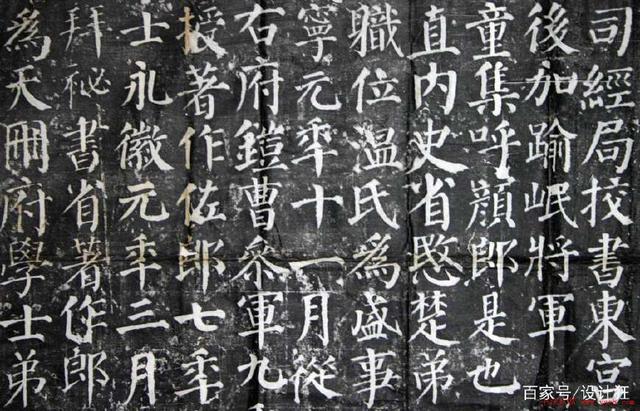 司經局校書東宮
後加踰岷將軍
童集呼顏郎是也
直內史省愍楚弟
職位温氏為盛事
寧元年十一月從
右府鎧曹參軍九
授著作佐郎七年
士永徽元年三月
拜祕書省著作郎
為天冊府學士弟
百家号/设计